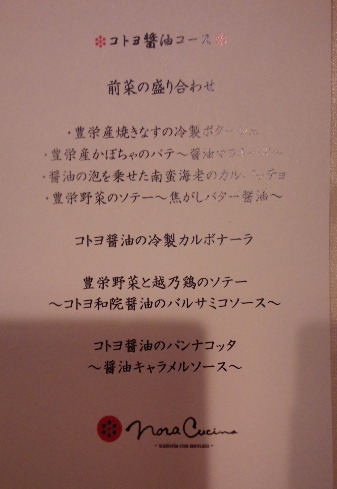 コトヨ醤油コース
前菜の盛り合わせ
・豊栄産焼きなすの冷製ポタージュ
・豊栄産かぼちゃのパテ〜醤油
・醤油の泡を乗せた南蛮海老のカルパッチョ
・豊栄野菜のソテー〜焦がしバター醤油〜
コトヨ醤油の冷製カルボナーラ
豊栄野菜と越乃鶏のソテー
〜コトヨ和院醤油のバルサミコソース〜
コトヨ醤油のパンナコッタ
〜醤油キャラメルソース〜
nora Cucina